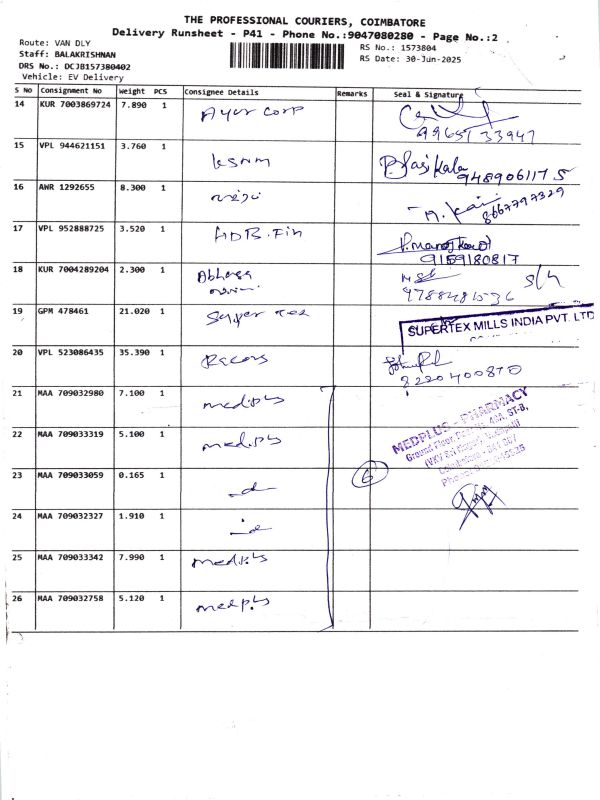 THE PROFESSIONAL COURIERS, COIMBATORE
Delivery Runsheet - P41 - Phone No.:9047080280 - Page No.:2
Route: VAN DLY
Staff: BALAKRISHNAN
DRS No.: DCJB157380402
Vehicle: EV Delivery
RS No.: 1573804
RS Date: 30-Jun-2025
S No Consignment No Weight PCS Consignee Details Remarks Seal & Signature
14 KUR 7003869724 7.890 1 Ayur Corp
99651 33947
15 VPL 944621151 3.760 1 KSNM P. Sasikala
9489061175
16 AWR 1292655 8.300 1
8667797329
17 VPL 952888725 3.520 1 HDB.Fin
9159180817
18 KUR 7004289204 2.300 1
19 GPM 478461 21.020 1 Super Tex SUPERTEX MILLS INDIA PVT. LTD
20 VPL 523086435 35.390 1
8220400870
21 MAA 709032980 7.100 1 medpls
22 MAA 709033319 5.100 1 medpls
MEDPLUS - PHARMACY
Ground Floor,
23 MAA 709033059 0.165 1 6
24 MAA 709032327 1.910 1
25 MAA 709033342 7.990 1 medpls
26 MAA 709032758 5.120 1 medpls